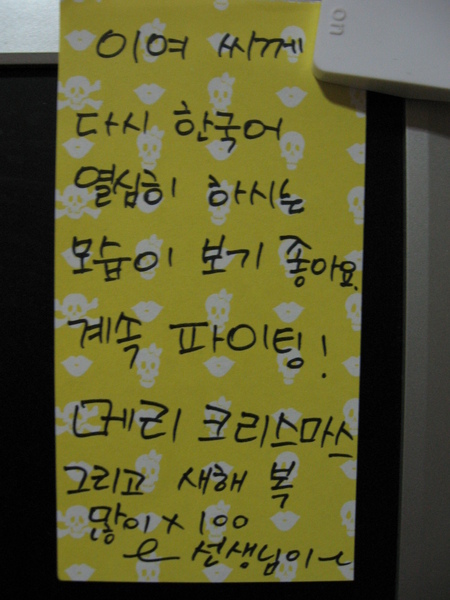 이여 씨께
다시 한국어
열심히 하시는
모습이 보기 좋아요.
계속 파이팅!
메리 크리스마스
그리고 새해 복
많이 x 100
e 선생님이~
on